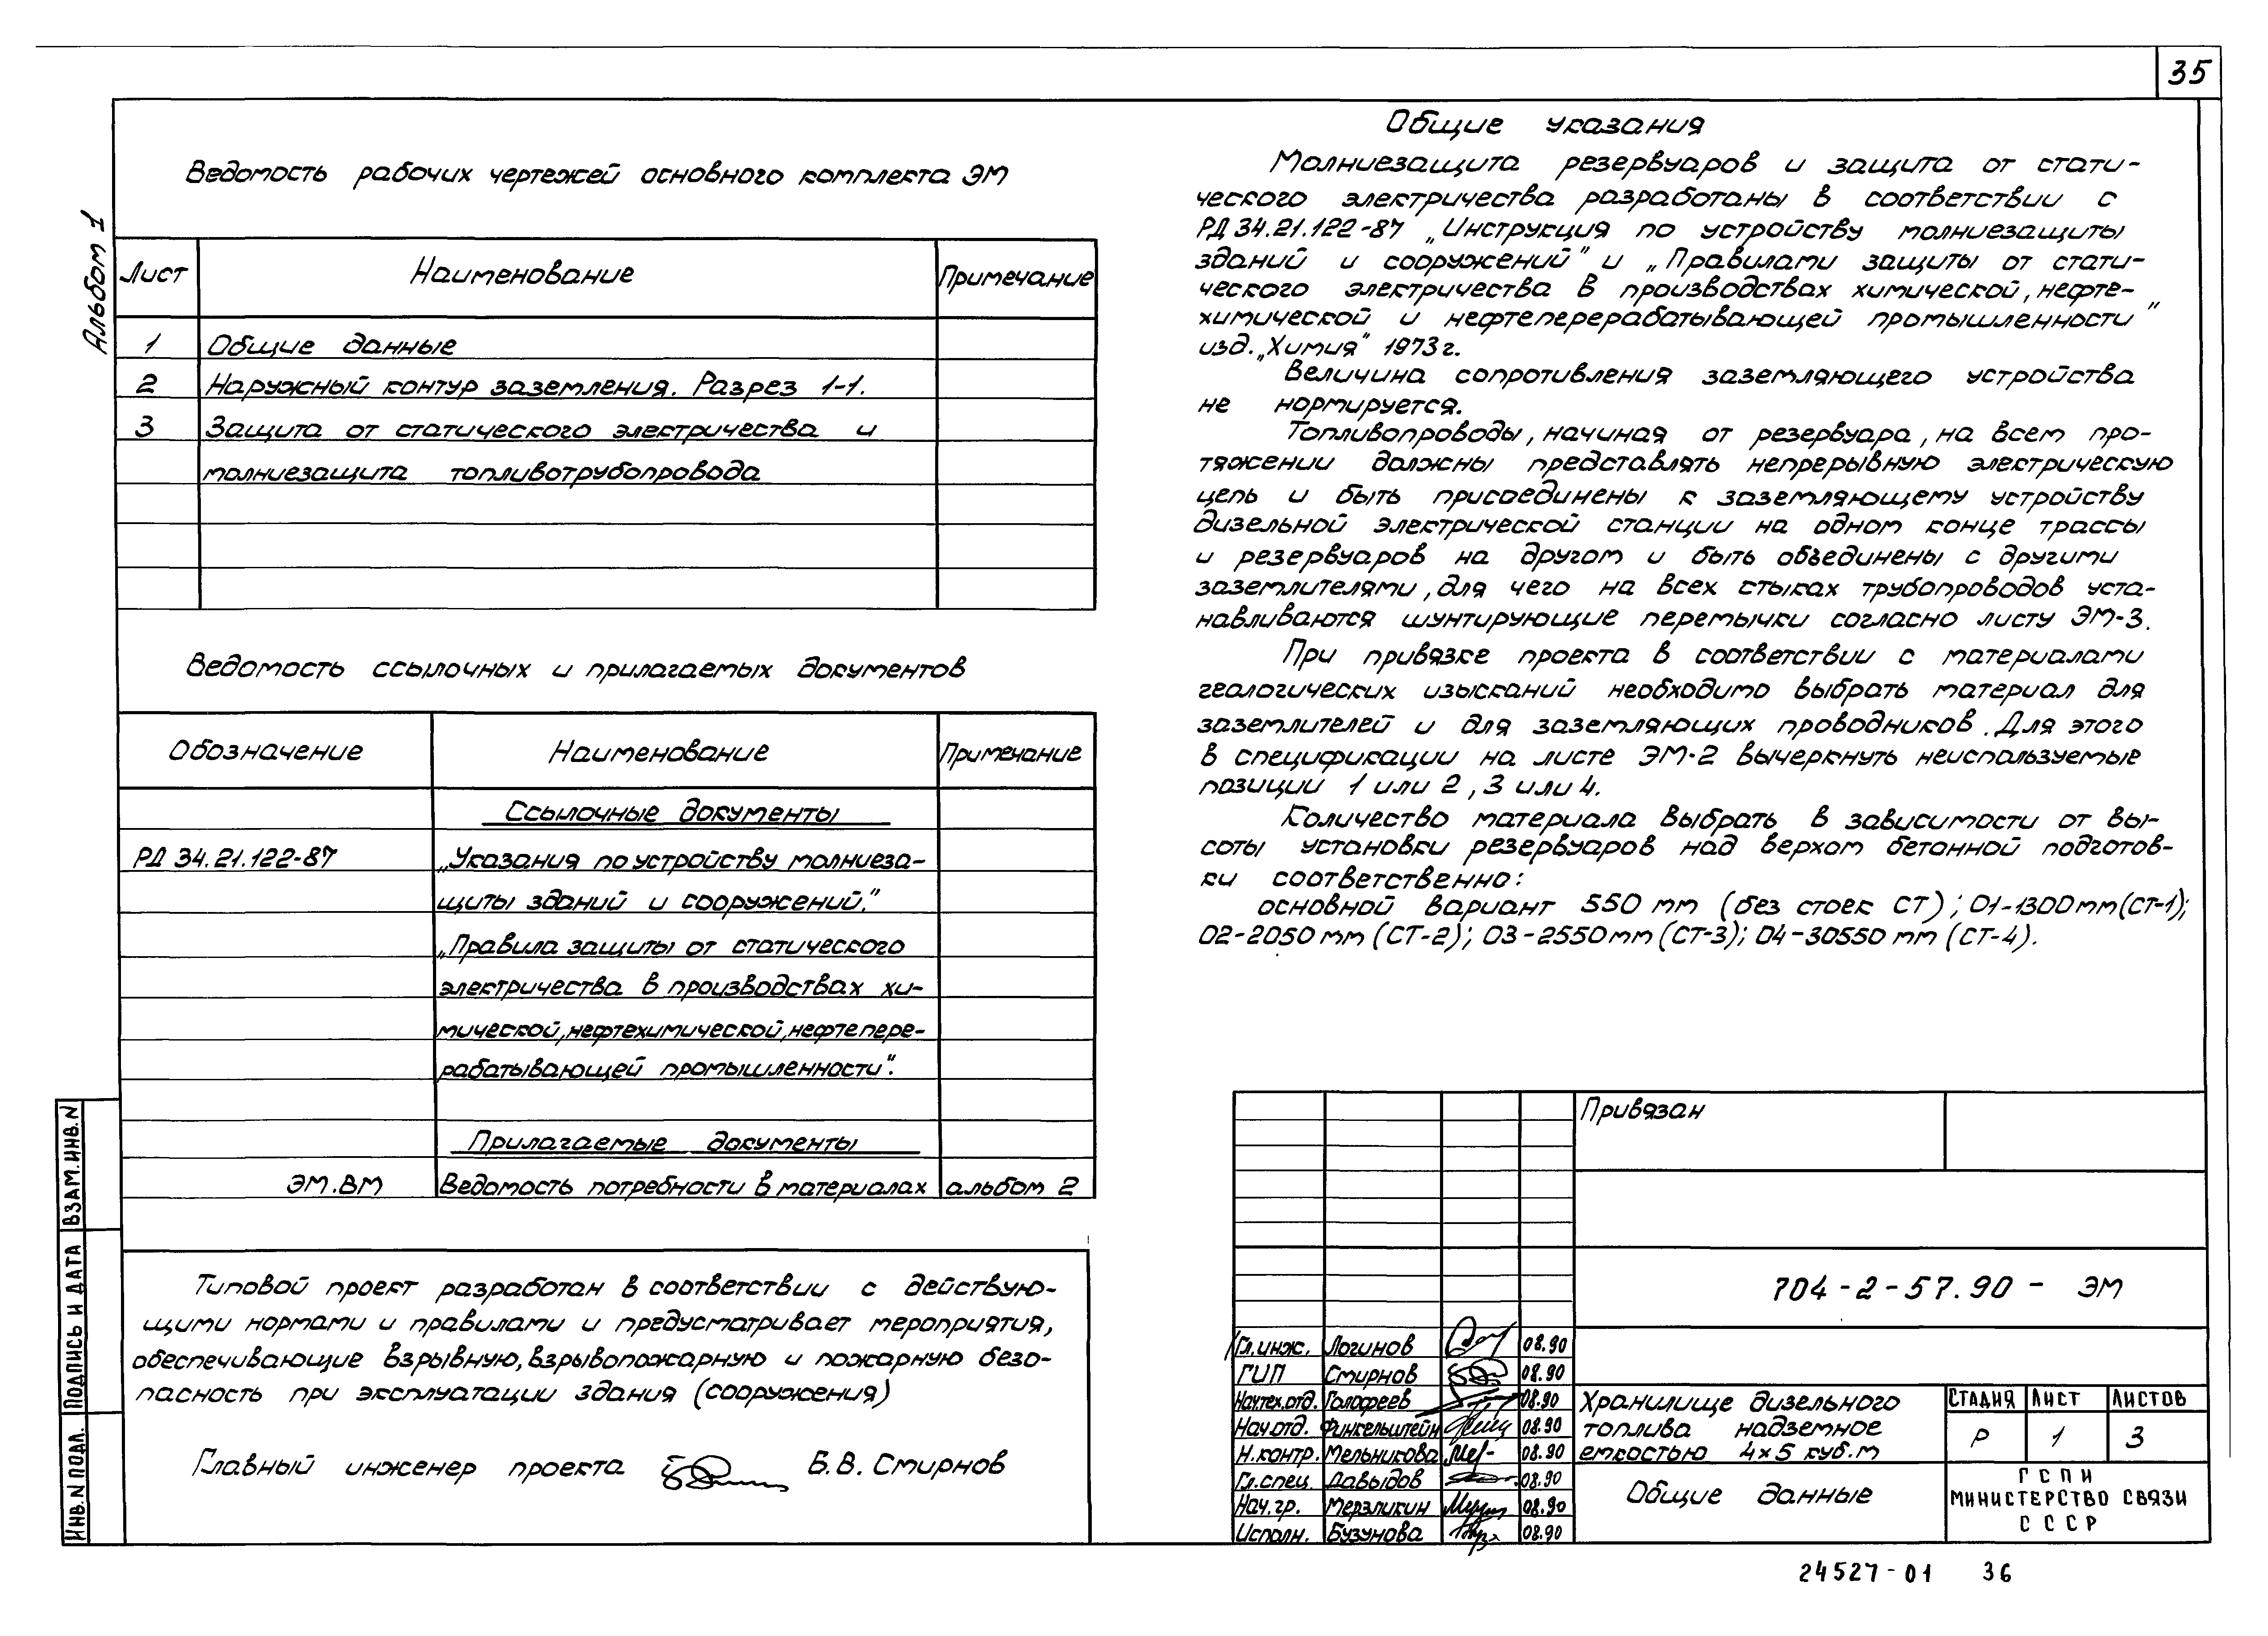 35
Альбом 1
Ведомость рабочих чертежей основного комплекта ЭМ
Лист Наименование Примечание
1 Общие данные
2 Наружный контур заземления. Разрез 1-1.
3 Защита от статического электричества и
молниезащита топливотрубопровода
Ведомость ссылочных и прилагаемых документов
Обозначение Наименование Примечание
Ссылочные документы
РД 34.21.122-87 „Указания по устройству молниеза-
щиты зданий и сооружений."
„Правила защиты от статического
электричества в производствах хи-
мической, нефтехимической, нефтепере-
рабатывающей промышленности".
Прилагаемые документы
ЭМ.ВМ Ведомость потребности в материалах альбом 2
Типовой проект разработан в соответствии с действую-
щими нормами и правилами и предусматривает мероприятия,
обеспечивающие взрывную, взрывопожарную и пожарную безо-
пасность при эксплуатации здания (сооружения)
Главный инженер проекта Б.В. Смирнов
Общие указания
Молниезащита резервуаров и защита от стати-
ческого электричества разработаны в соответствии с
РД 34.21.122-87 „Инструкция по устройству молниезащиты
зданий и сооружений" и „Правилами защиты от стати-
ческого электричества в производствах химической, нефте-
химической и нефтеперерабатывающей промышленности"
изд. „Химия" 1973г.
Величина сопротивления заземляющего устройства
не нормируется.
Топливопроводы, начиная от резервуара, на всем про-
тяжении должны представлять непрерывную электрическую
цепь и быть присоединены к заземляющему устройству
дизельной электрической станции на одном конце трассы
и резервуаров на другом и быть объединены с другими
заземлителями, для чего на всех стыках трубопроводов уста-
навливаются шунтирующие перемычки согласно листу ЭМ-3.
При привязке проекта в соответствии с материалами
геологических изысканий необходимо выбрать материал для
заземлителей и для заземляющих проводников. Для этого
в спецификации на листе ЭМ-2 вычеркнуть неиспользуемые
позиции 1 или 2, 3 или 4.
Количество материала выбрать в зависимости от вы-
соты установки резервуаров над верхом бетонной подготов-
ки соответственно:
основной вариант 550 мм (без стоек СТ); 01-1300мм (СТ-1);
02-2050 мм (СТ-2); 03-2550мм (СТ-3); 04-30550 мм (СТ-4).
Привязан
704-2-57.90 - ЭМ
Гл.инж. Логинов 08.90
ГИП Смирнов 08.90
Нач.тех.отд. Голофеев 08.90
Нач.отд. Финкельштейн 08.90
Н.контр. Мельникова 08.90
Гл.спец. Давыдов 08.90
Нач.гр. Мерзликин 08.90
Исполн. Бузунова 08.90
Хранилище дизельного
топлива надземное
емкостью 4×5 куб.м
СТАДИЯ ЛИСТ ЛИСТОВ
Р 1 3
Общие данные
ГСПИ
МИНИСТЕРСТВО СВЯЗИ
СССР
ВЗАМ.ИНВ.N
ПОДПИСЬ И ДАТА
ИНВ.N ПОДЛ.
24527-01 36